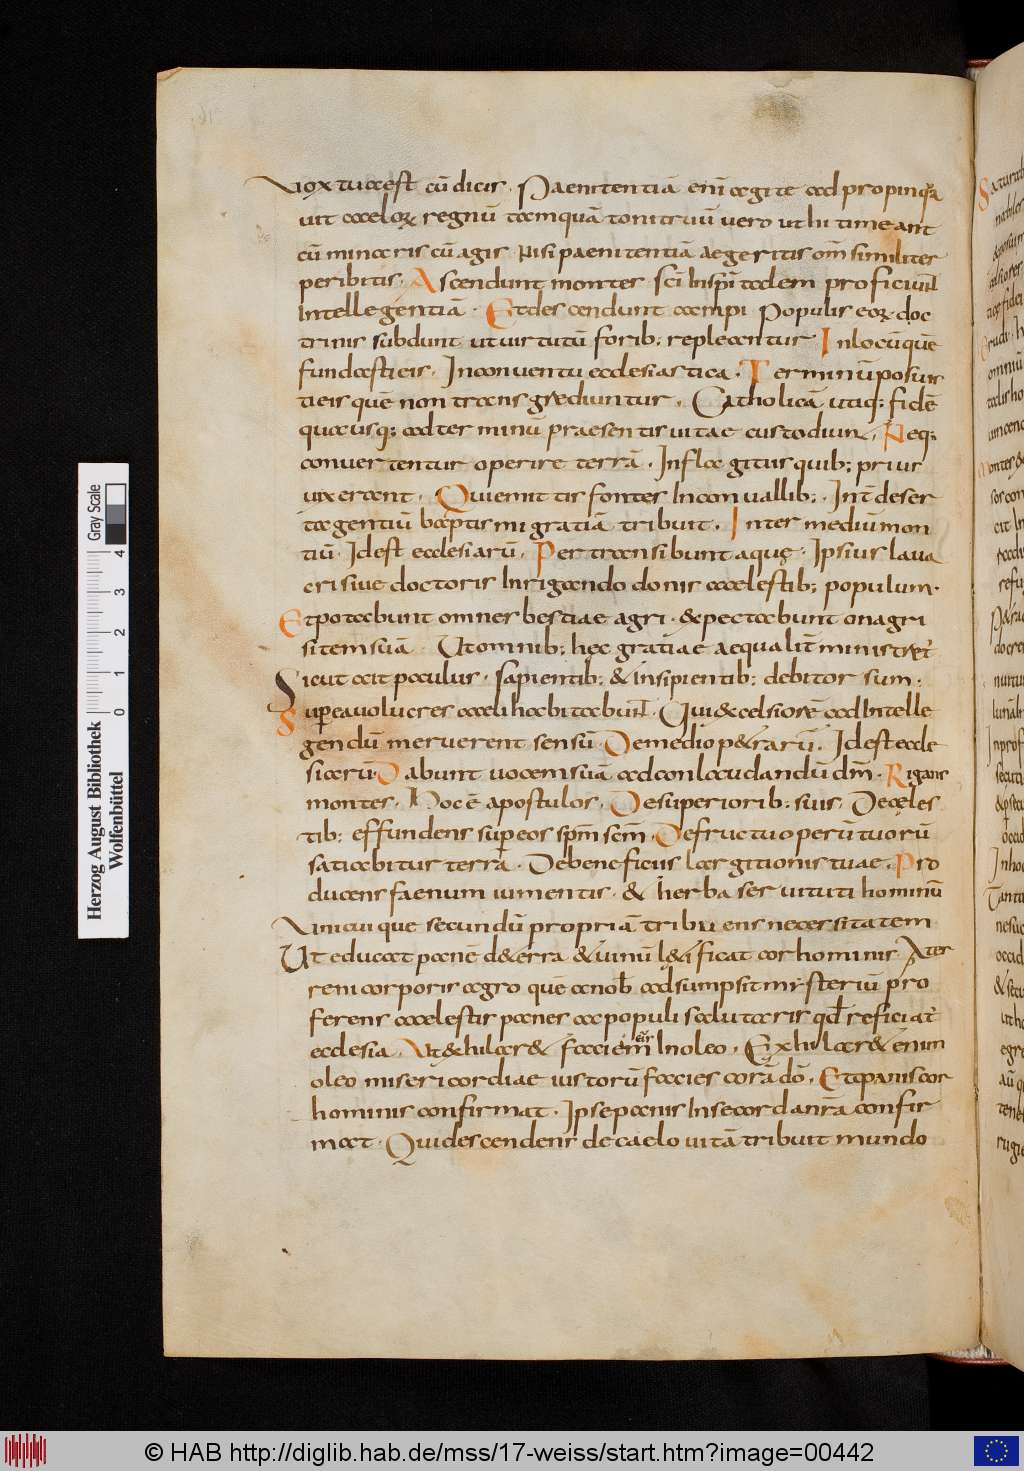 Vox tua est cū dicis. Paenitentiā enī agite adpropinq̄
uit caeloꝝ regnū tamquā tonitruū uero ut hi timeant
cū minaris cū agis. Nisi paenitentiā aegeritis om̄ similiter
peribitis. Ascendunt montes. sc̄i In spū tadem proficiunt
Intellegentiā. Et descendunt campi populis eoꝝ. doc
trinis subdunt ut uirtutū forib; repleantur. In locū quē
fundasti eis. In conuentu ecclesiastica. Terminū posuis
ti eis quē non transgrediuntur. Catholicā utiq; fidē
qua usq; ad terminū praesentis uitae custodiunt. Neq;
conuertentur operire terrā. Infla gitiis quib; prius
uixerant. Qui emittis fontes In conuallib;. In t̄ deser
ta gentiū baptismi gratiā tribuit. Inter mediū mon
tiū. Id est ecclesiarū. Per transibunt aquę. Ipsius laua
cri siue doctoris Inrigando donis caelestib; populum.
Et potabunt omnes bestiae agri. & expectabunt onagri
sitem suā. Ut omnib; hec gratiae aequalit̄ ministret̄
Sicut ait paulus. sapientib; & insipientib; debitor sum.
Super ea uolucres caeli habitabunt. Qui excelsiorē ad Intelle
gendū meruerent sensū. De medio petrarū. Id est eccle
siarū. Dabunt uocem suā ad conlaudandū dm̄. Rigans
montes. Hoc ē apostulos. De superiorib; suis. De cęles
tib; effundens super eos spm̄ scm̄. De fructu operū tuorū
satiabitur terra. De beneficiis largitionis tuae. Pro
ducens faenum iumentis. & herba seruituti hominū
Vnicuique secundū propriā tribuens necessitatem
Ut educat panē de terra & uinū lętificat cor hominis. Ater
reni corporis agro quē a nob̄ adsumpsit mysteriū pro
ferens caelestis panes ac populi salutaris qđ reficiat̄
ecclesia. Ut exhilaret faciem eiꝰ In oleo. Exhilaret enim
oleo misericordiae iustorū facies corā dō. Et panis cor
hominis confirmat. Ipse panis Inse corda nr̄a confir
mat. Qui descendens de caelo uitā tribuit mundo
Herzog August Bibliothek
Wolfenbüttel
Gray Scale
0 1 2 3 4
© HAB http://diglib.hab.de/mss/17-weiss/start.htm?image=00442